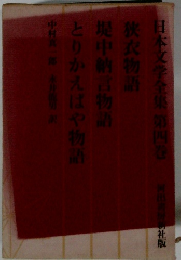 日本文学全集 第四巻
狭衣物語
堤中納言物語
とりかえばや物語
中村真一郎 訳
河出書房新社版